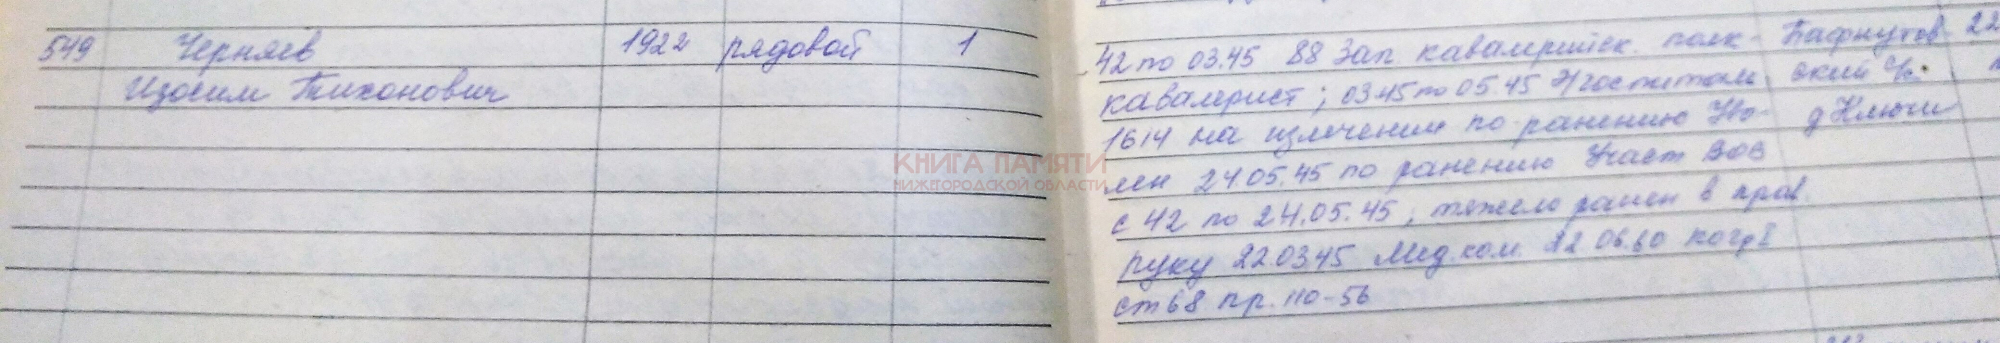 549 Черняев 1922 рядовой 1
Изосим Тихонович
42 по 03.45 88 Зап. кавалерийск. полк - Пафнутов- 22
кавалерист; 03.45 по 05.45 Эгоспиталь ский с/с.
1614 на излечении по ранению Уво- д Ключи
лен 24.05.45 по ранению Участ ВОВ
с 42 по 24.05.45; тяжело ранен в прав.
руку 22.03.45 Мед.ком. 12.06.60
ст 68 пр. 110-56
КНИГА ПАМЯТИ
НИЖЕГОРОДСКОЙ ОБЛАСТИ